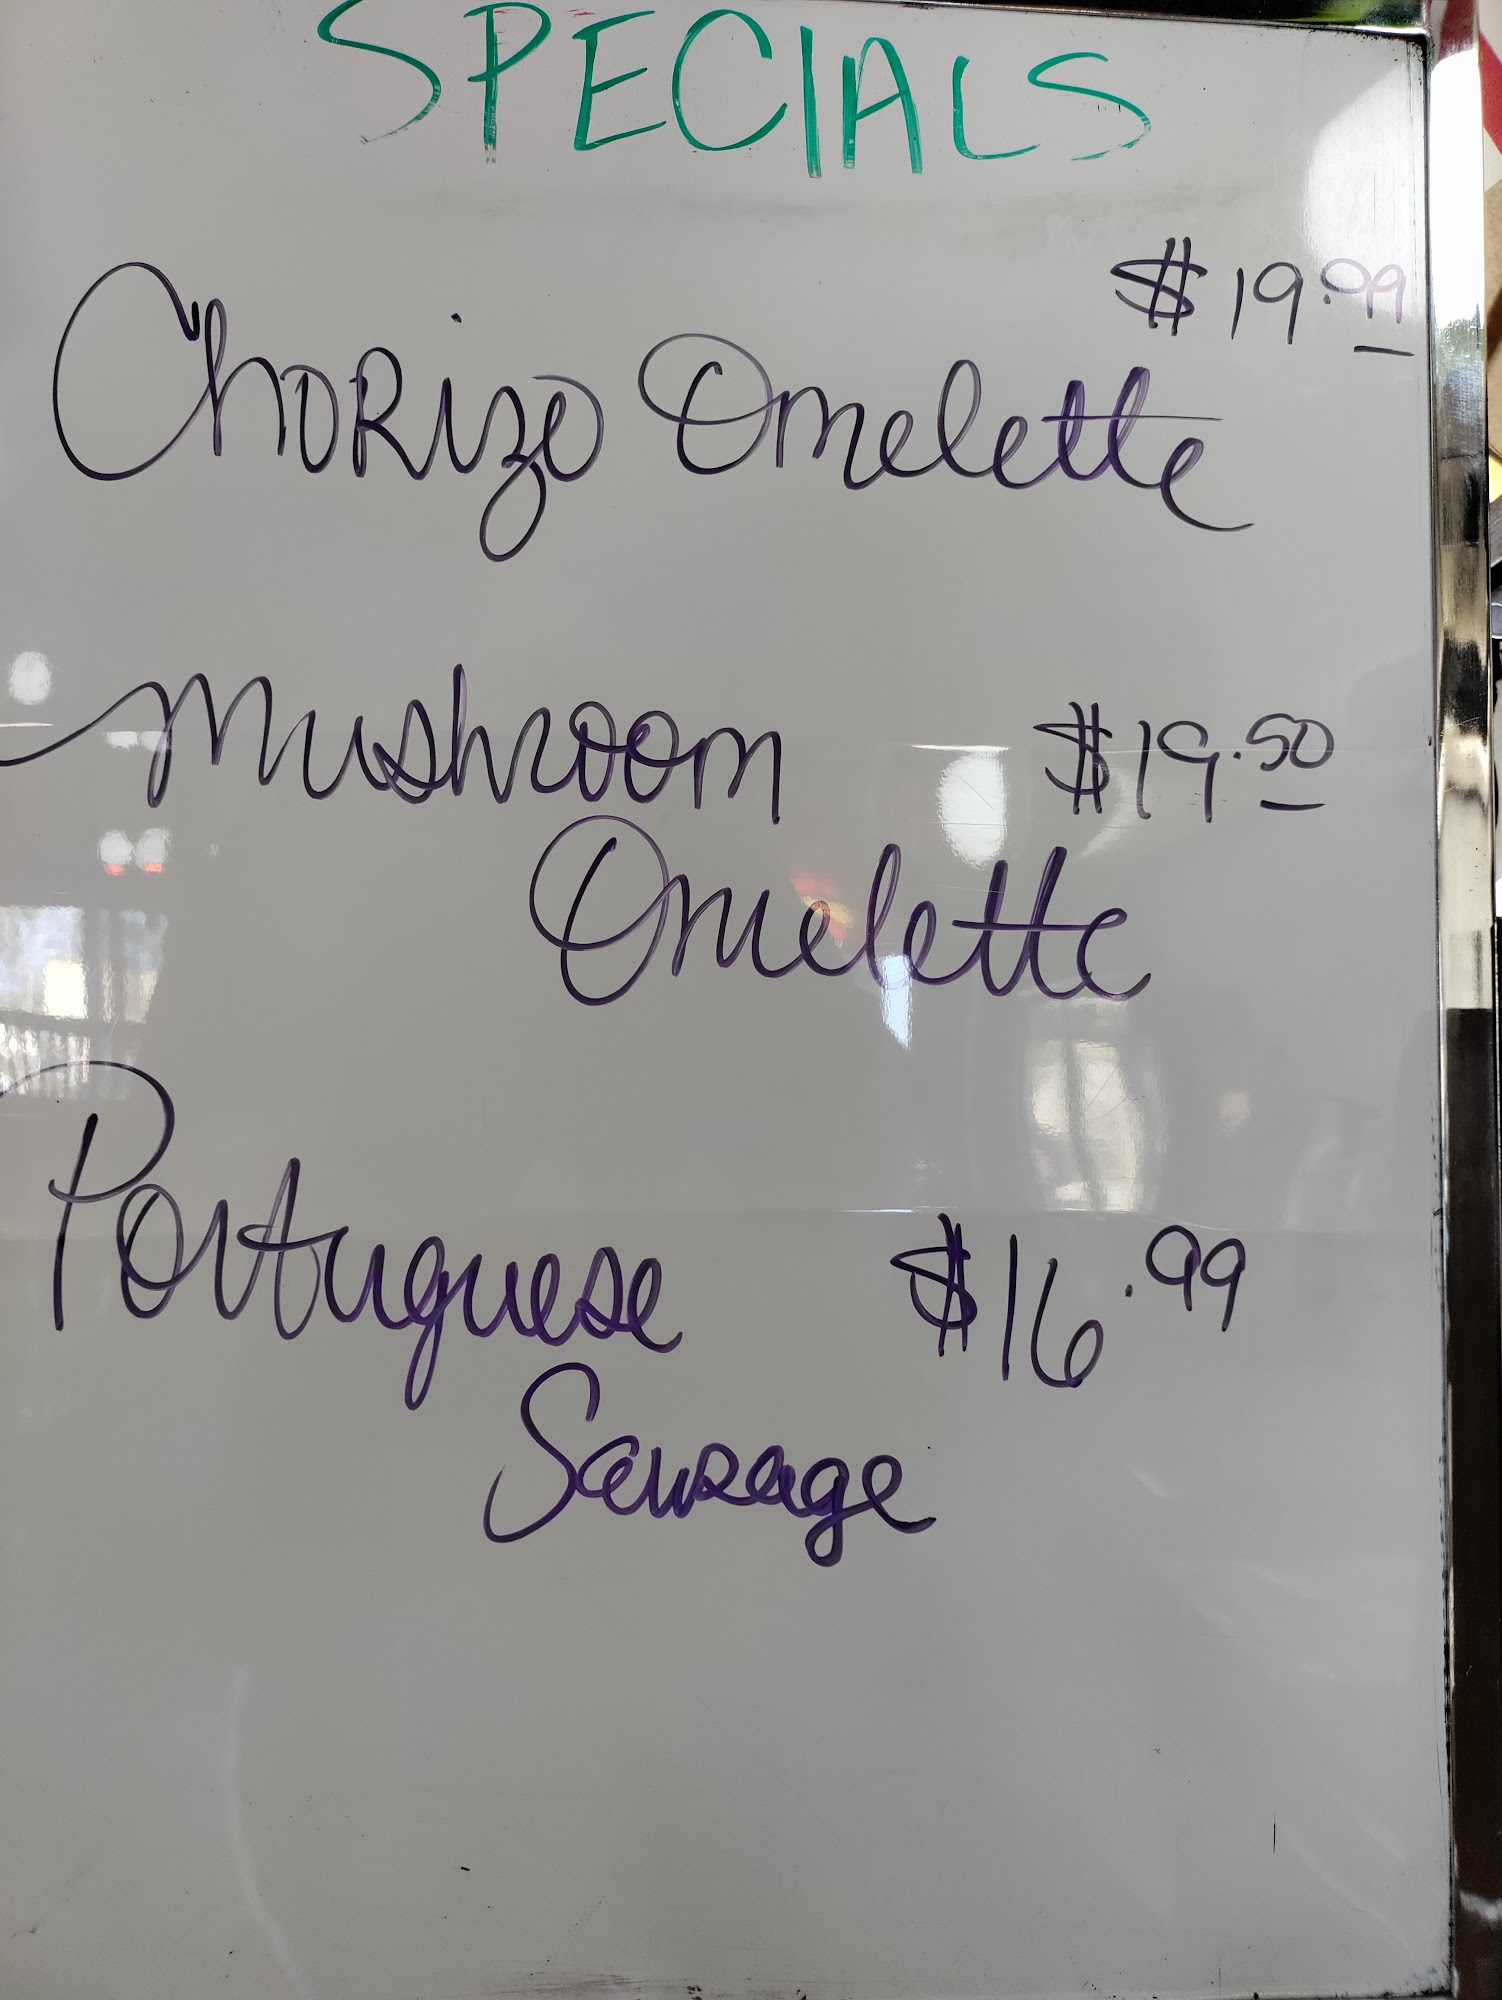 SPECIALS
$19.99
Chorizo Omelette
Mushroom $19.50
Omelette
Portuguese $16.99
Sausage